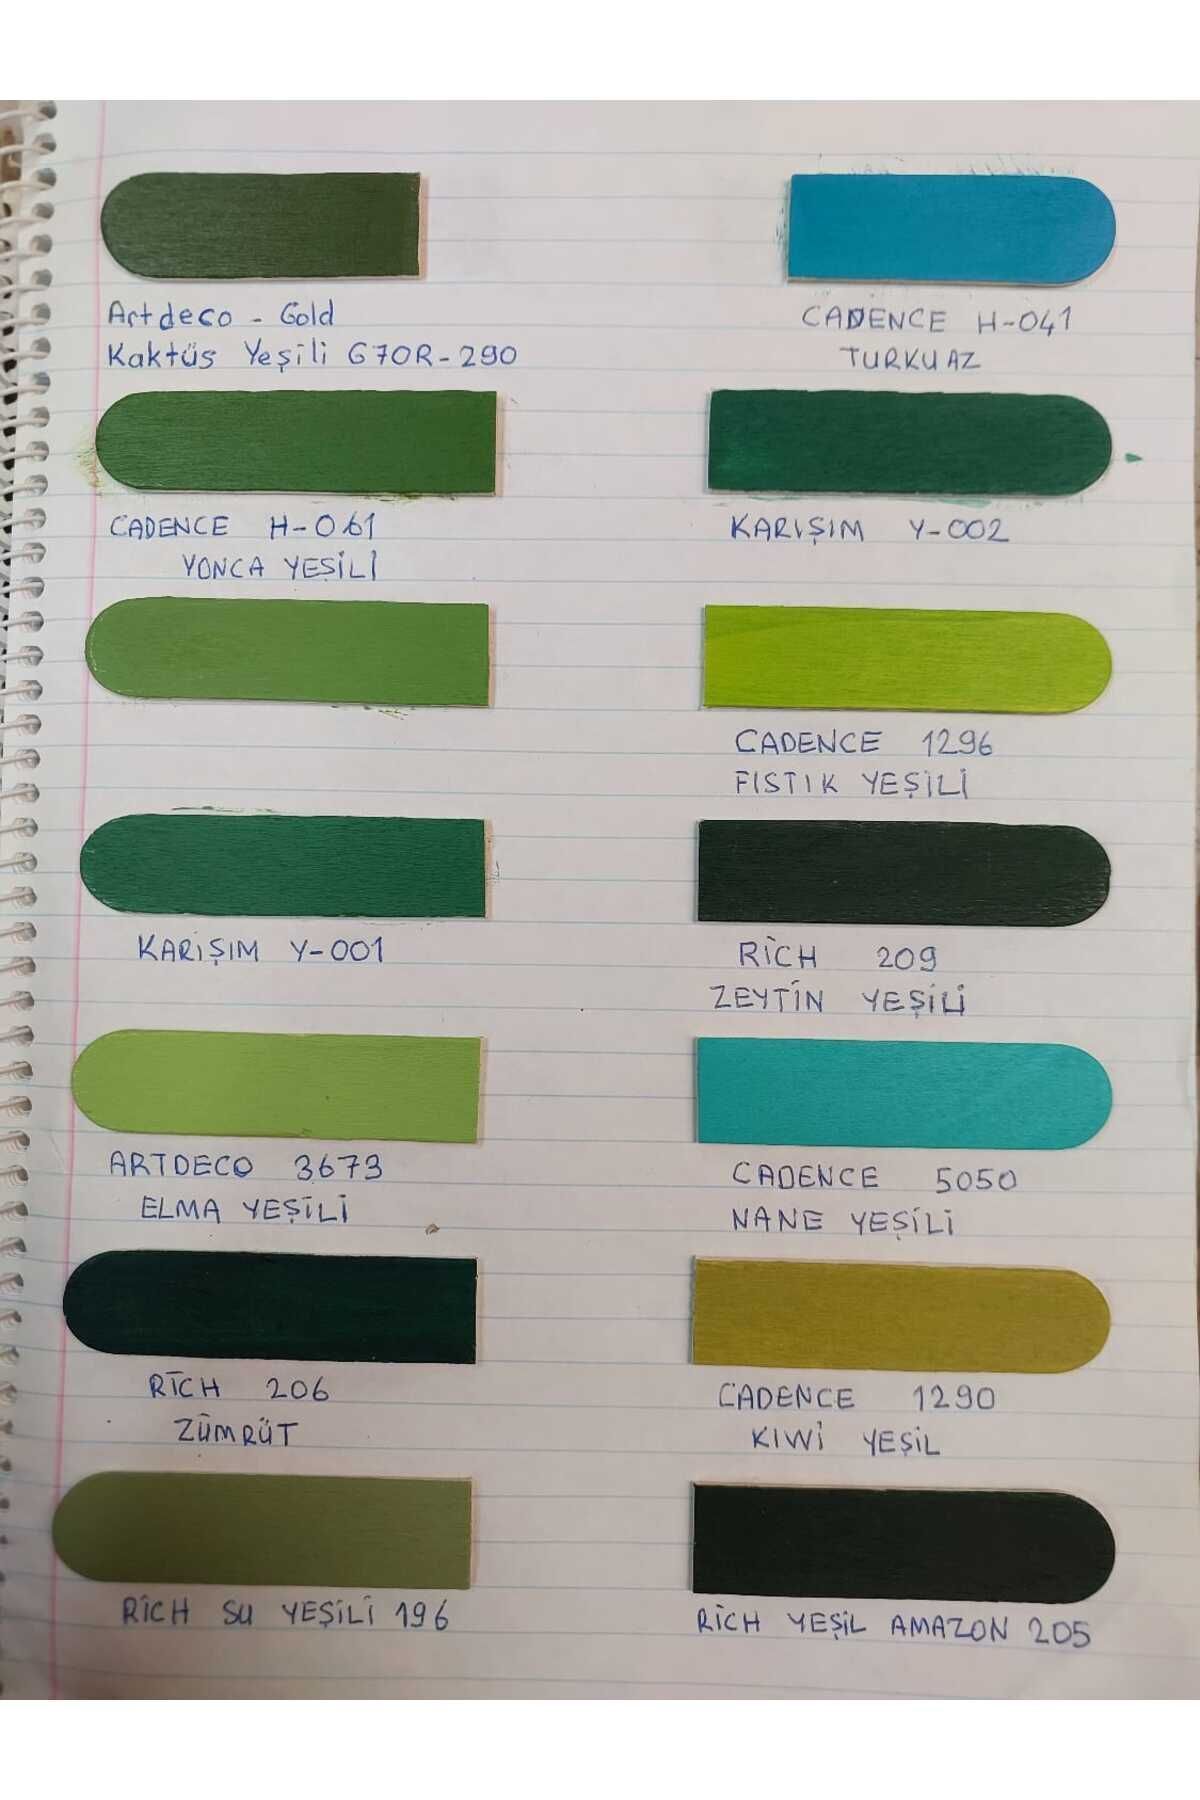 Artdeco - Gold
Kaktüs Yeşili G70R-290
CADENCE H-041
TURKUAZ
CADENCE H-061
YONCA YEŞİLİ
KARIŞIM Y-002
CADENCE 1296
FISTIK YEŞİLİ
KARİŞIM Y-001
RİCH 209
ZEYTİN YEŞİLİ
ARTDECO 3673
ELMA YEŞİLİ
CADENCE 5050
NANE YEŞİLİ
RİCH 206
ZÜMRÜT
CADENCE 1290
KIWİ YEŞİL
RİCH SU YEŞİLİ 196
RİCH YEŞİL AMAZON 205